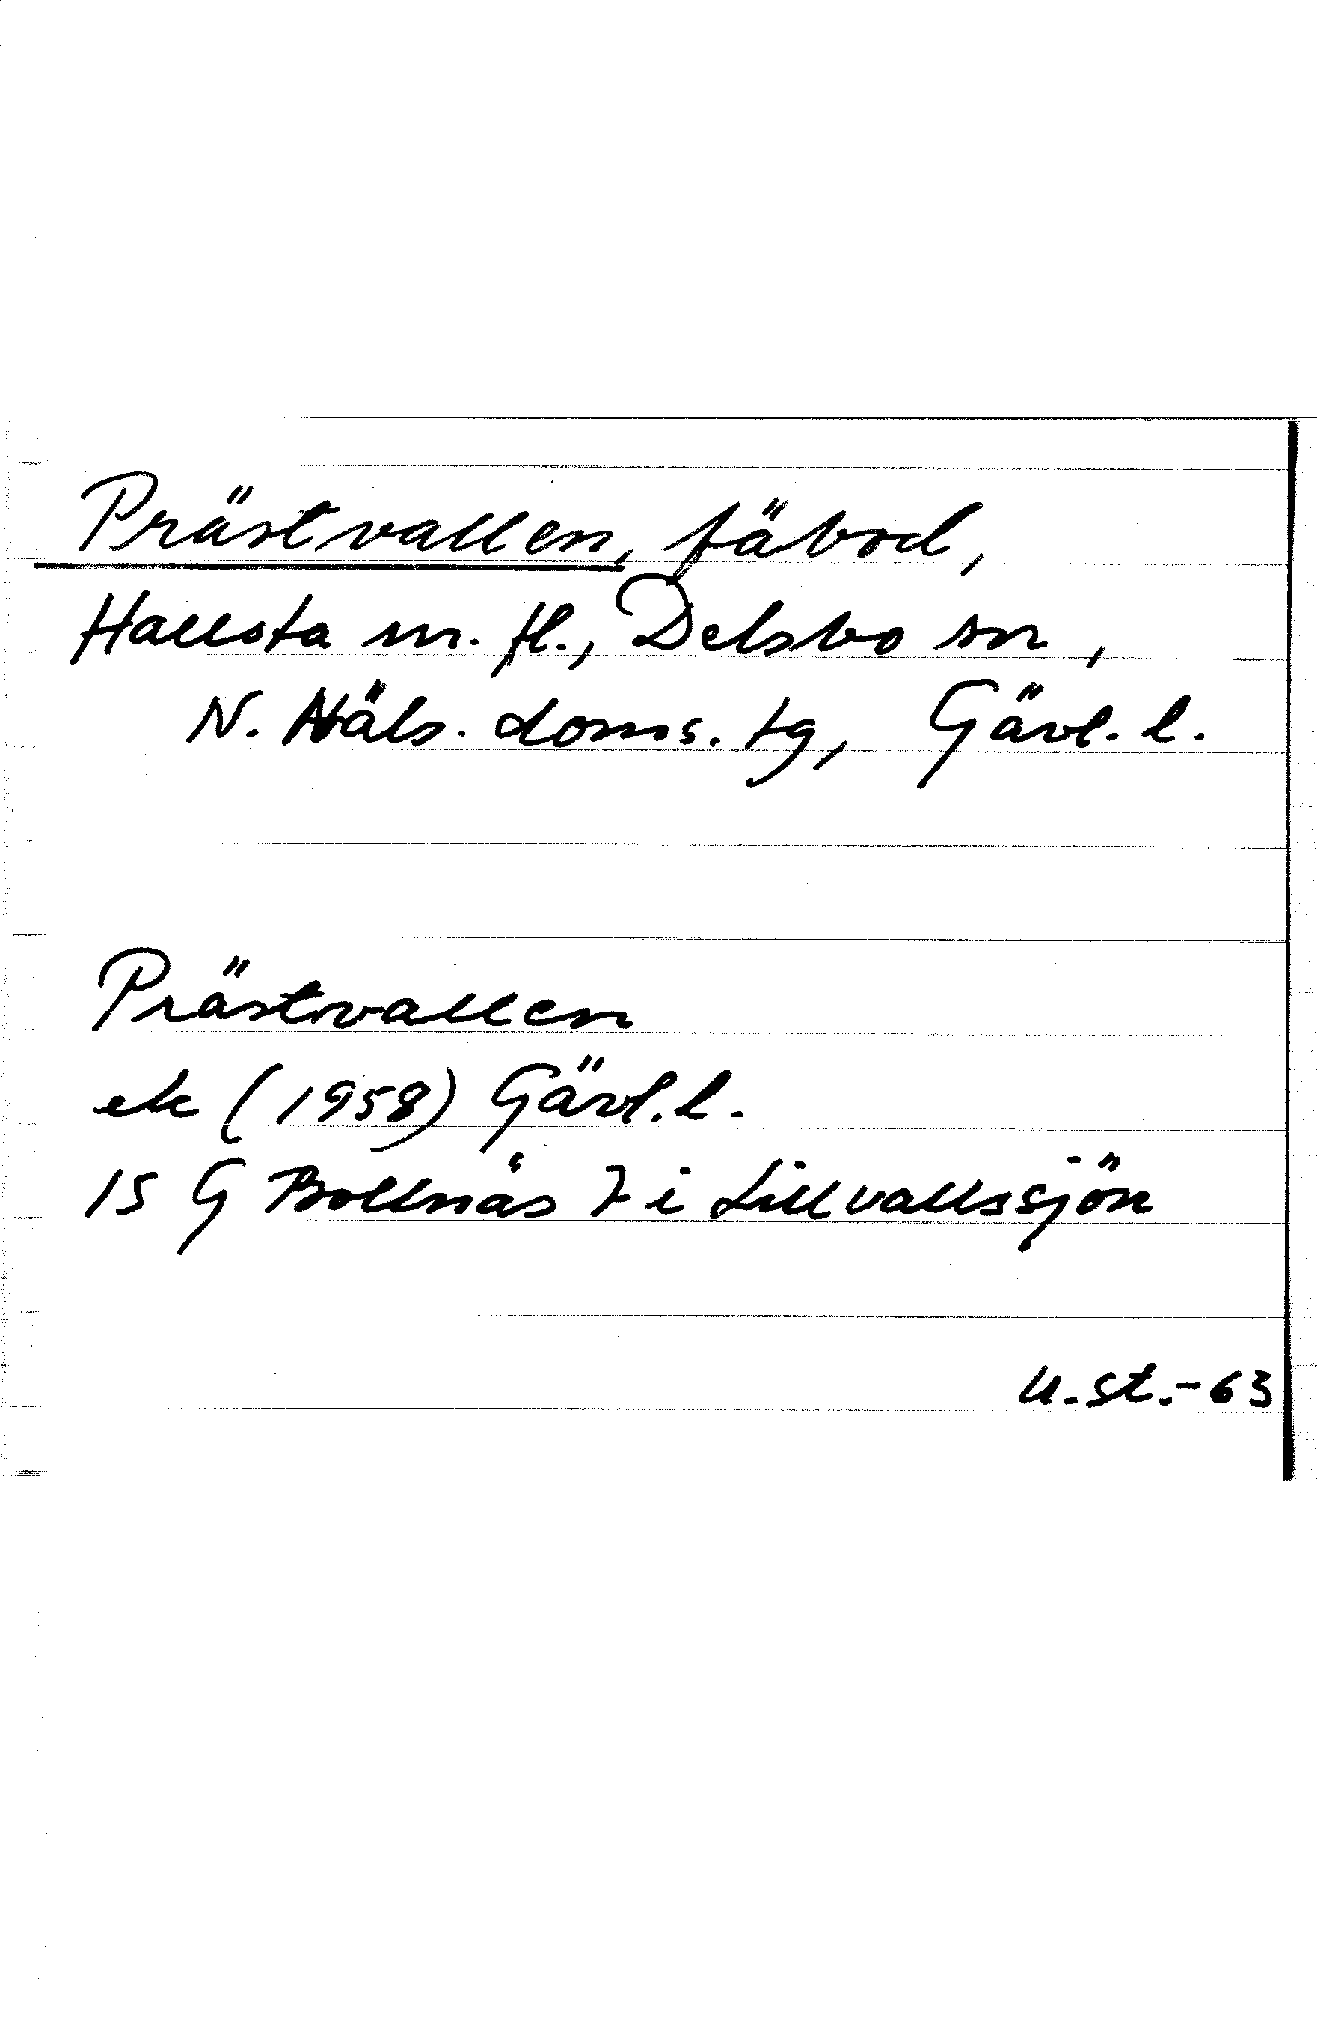 Prästvallen, fäbod,
Hallsta m. fl., Delsbo sn,
N. Häls. doms. tg, Gävl. l.
Prästvallen
ek (1958) Gävl. l.
15 G Bollnäs 7 i Lillvallssjön
U. st. -63